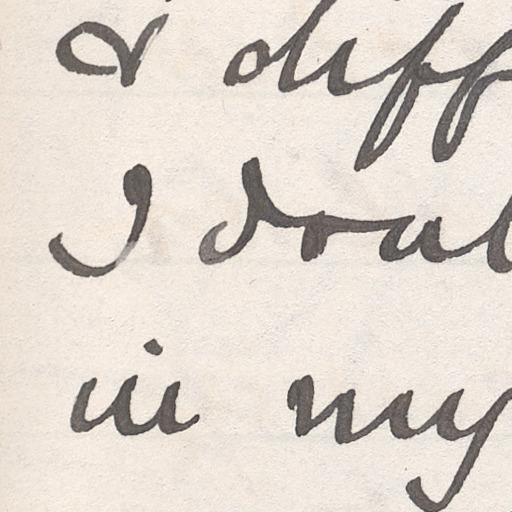 & diff
I doub
in my